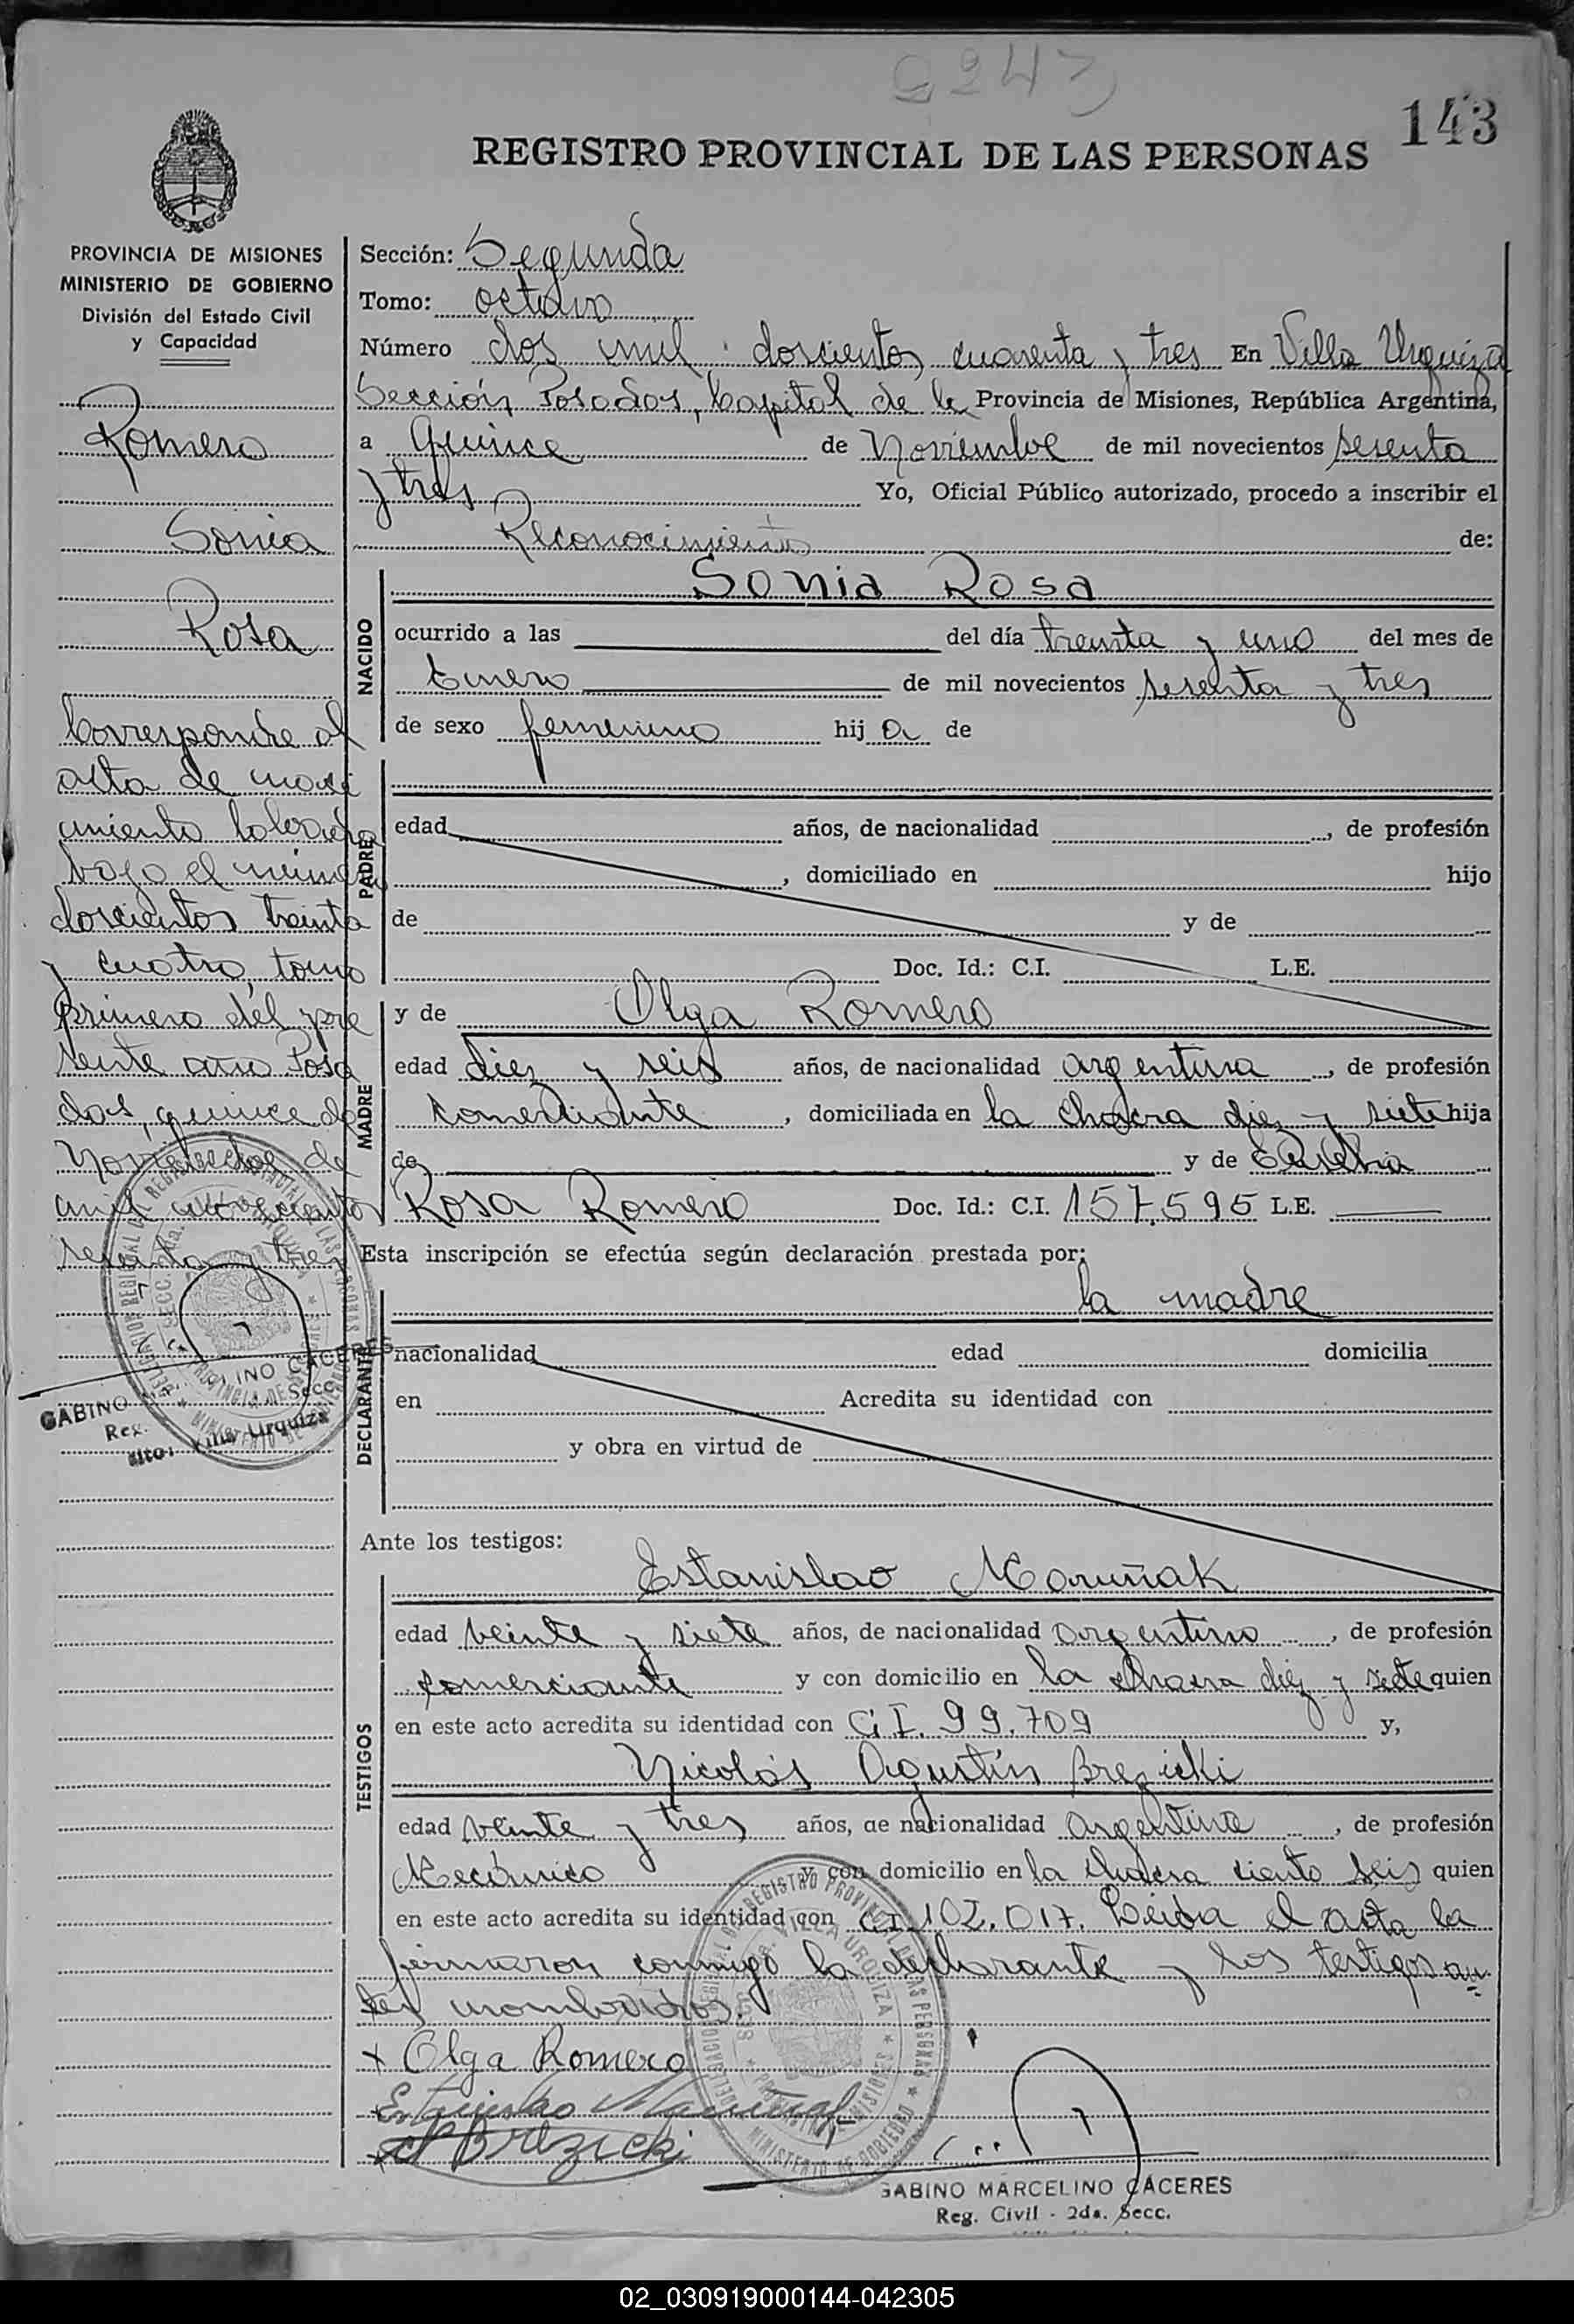 2243
143
REGISTRO PROVINCIAL DE LAS PERSONAS
PROVINCIA DE MISIONES
MINISTERIO DE GOBIERNO
División del Estado Civil
y Capacidad
Romero
Sonia
Rosa
Corresponde al
acta de naci
miento labrada
bajo el número
doscientos treinta
y cuatro, tomo
primero del pre
sente año Posa
das, quince de
Noviembre de
mil novecientos
sesenta y tres
GABINO
CACERES
Villa Urquiza
Sección: Segunda
Tomo: octavo
Número dos mil doscientos cuarenta y tres En Villa Urquiza
Sección Posadas, Capital de la Provincia de Misiones, República Argentina,
a Quince de Noviembre de mil novecientos sesenta
y tres Yo, Oficial Público autorizado, procedo a inscribir el
Reconocimiento de:
NACIDO
Sonia Rosa
ocurrido a las del día treinta y uno del mes de
Enero de mil novecientos sesenta y tres
de sexo femenino hij a de
PADRE
edad años, de nacionalidad , de profesión
, domiciliado en hijo
de y de
Doc. Id.: C.I. L.E.
MADRE
y de Olga Romero
edad diez y seis años, de nacionalidad argentina , de profesión
comerciante , domiciliada en la chacra diez y siete hija
de y de
Rosa Romero Doc. Id.: C.I. 157.595 L.E.
Esta inscripción se efectúa según declaración prestada por:
DECLARANTE
la madre
nacionalidad edad domicilia
en Acredita su identidad con
y obra en virtud de
Ante los testigos:
TESTIGOS
Estanislao Maruñak
edad veinte y siete años, de nacionalidad argentino , de profesión
comerciante y con domicilio en la chacra diez y siete quien
en este acto acredita su identidad con C.I. 99.709 y,
Nicolás Agustín Brezicki
edad veinte y tres años, de nacionalidad argentina , de profesión
Mecánico y con domicilio en la chacra ciento seis quien
en este acto acredita su identidad con C.I. 102.017. Leída el acta la
firmaron conmigo la declarante y los testigos an
tes nombrados.
x Olga Romero
Estanislao Maruñak
Brezicki
GABINO MARCELINO CÁCERES
Reg. Civil - 2da. Secc.
02_030919000144-042305